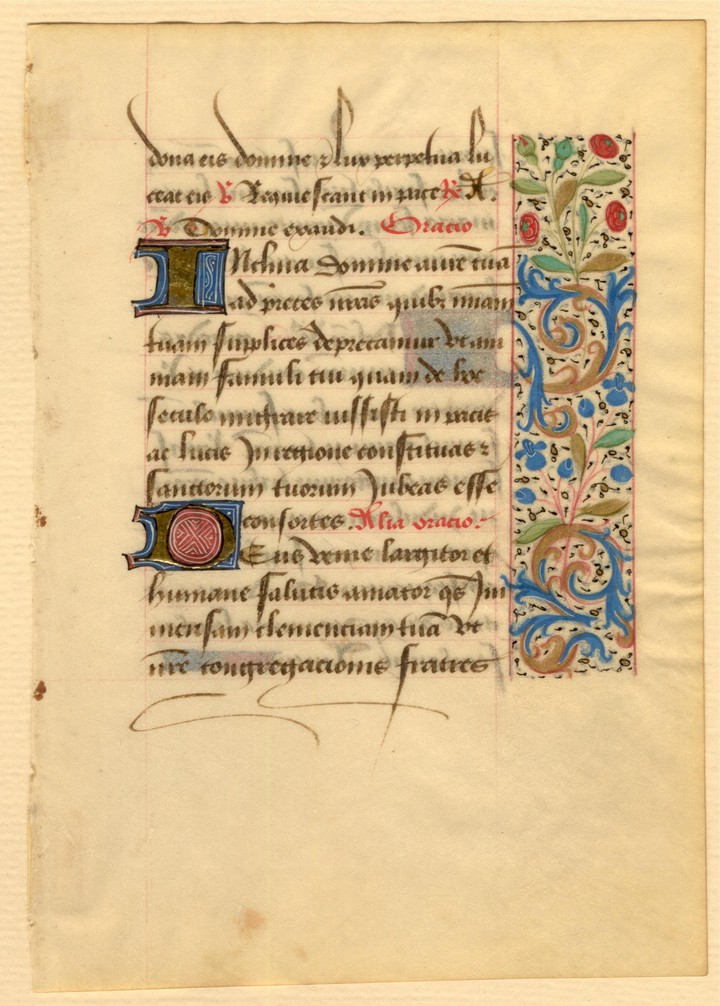 dona eis domine ⁊ lux perpetua lu
ceat eis ℣ Requiescant in pace ℟ A.
℣ Domine exaudi. Oracio
INclina domine aurē tuā
ad preces nr̄as quibꝫ miam
tuam supplices deprecamur vt ani
mam famuli tui quam de hoc
seculo migrare iussisti in pacis
ac lucis In regione constituas ⁊
sanctorum tuorum Jubeas esse
consortes. Alia oracio.
DEus venie largitor et
humane salutis amator qs̄ Im
mensam clemenciam tuā vt
nr̄e congregacionis fratres